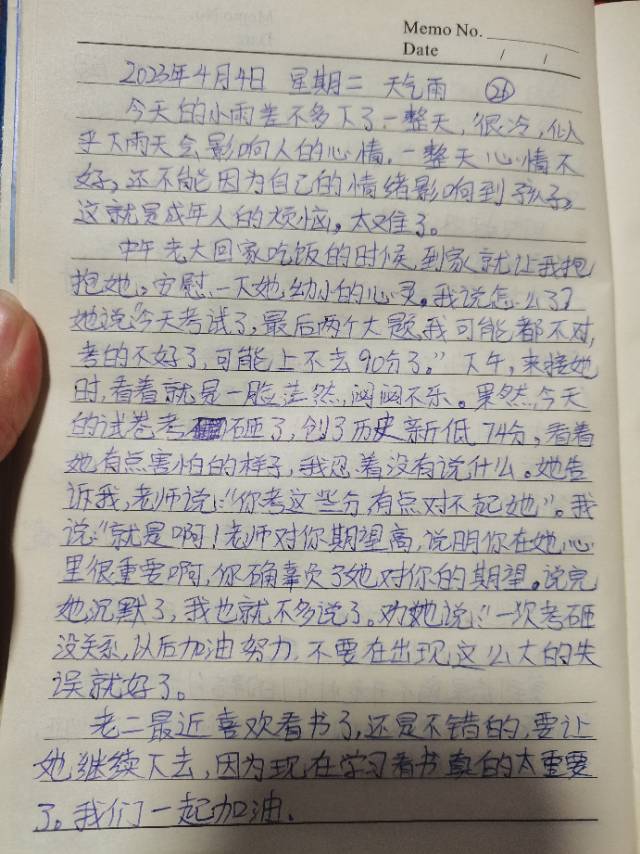 Memo No.
Date / /
2023年4月4日 星期二 天气雨 ㉔
今天的小雨差不多下了一整天,很冷,似
乎下雨天会影响人的心情,一整天心情不
好,还不能因为自己的情绪影响到孩子,
这就是成年人的烦恼。太难了。
中午老大回家吃饭的时候,到家就让我抱
抱她。安慰一下她,幼小的心灵。我说怎么了?
她说"今天考试了,最后两个大题,我可能都不对,
考的不好了,可能上不去90分了。"下午,来接她
时,看着就是一脸茫然,闷闷不乐。果然,今天
的试卷考砸了,创了历史新低74分,看着
她有点害怕的样子,我忍着没有说什么。她告
诉我,老师说:"你考这些分,有点对不起她"。我
说:"就是啊!老师对你期望高,说明你在她心
里很重要啊,你确辜负了她对你的期望。说完
她沉默了,我也就不多说了。劝她说:"一次考砸
没关系,以后加油努力,不要在出现这么大的失
误就好了。
老二最近喜欢看书了,还是不错的,要让
她继续下去,因为现在学习看书真的太重要
了。我们一起加油.